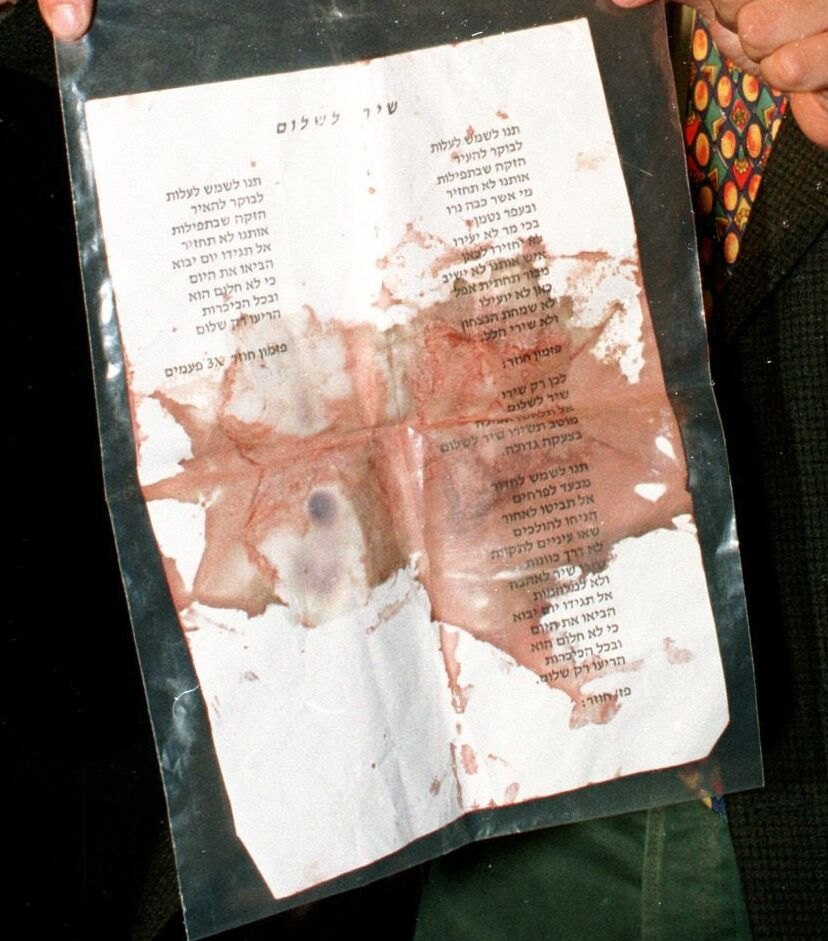 שיר לשלום
תנו לשמש לעלות
לבוקר להעיר
הזקה שבתפילות
אותנו לא תחזיר
מי אשר כבה נרו
ובעפר נטמן
בכי מר לא יעירו
לא יחזירו לכאן
איש אותנו לא ישיב
מבור תחתית אפל
כאן לא יועילו
לא שמחת הנצחון
ולא שירי הלל.
פזמון חוזר:
לכן רק שירו
שיר לשלום
אל
מוטב תשירו שיר לשלום
בצעקה גדולה.
תנו לשמש לחדור
מבעד לפרחים
אל תביטו לאחור
הניחו להולכים
שאו עיניים לתקווה
לא דרך כוונות
שיר לאהבה
ולא למלחמות
אל תגידו יום יבוא
הביאו את היום
כי לא חלום הוא
ובכל הכיכרות
הריעו רק שלום.
פז/ חוזר:
תנו לשמש לעלות
לבוקר להאיר
הזקה שבתפילות
אותנו לא תחזיר
אל תגידו יום יבוא
הביאו את היום
כי לא חלום הוא
ובכל הכיכרות
הריעו רק שלום
פזמון חוזר 3X פעמים